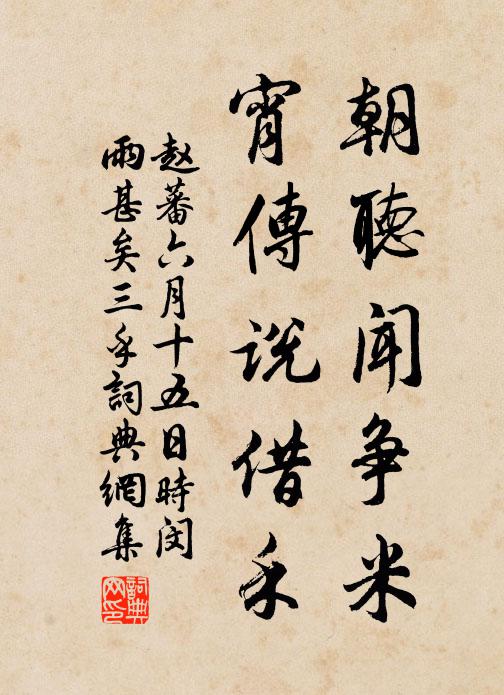 朝聽聞争米
宵傳説借禾
赵蕃六月十五日時闵
雨甚矣三首詞典網集
詞典
网印